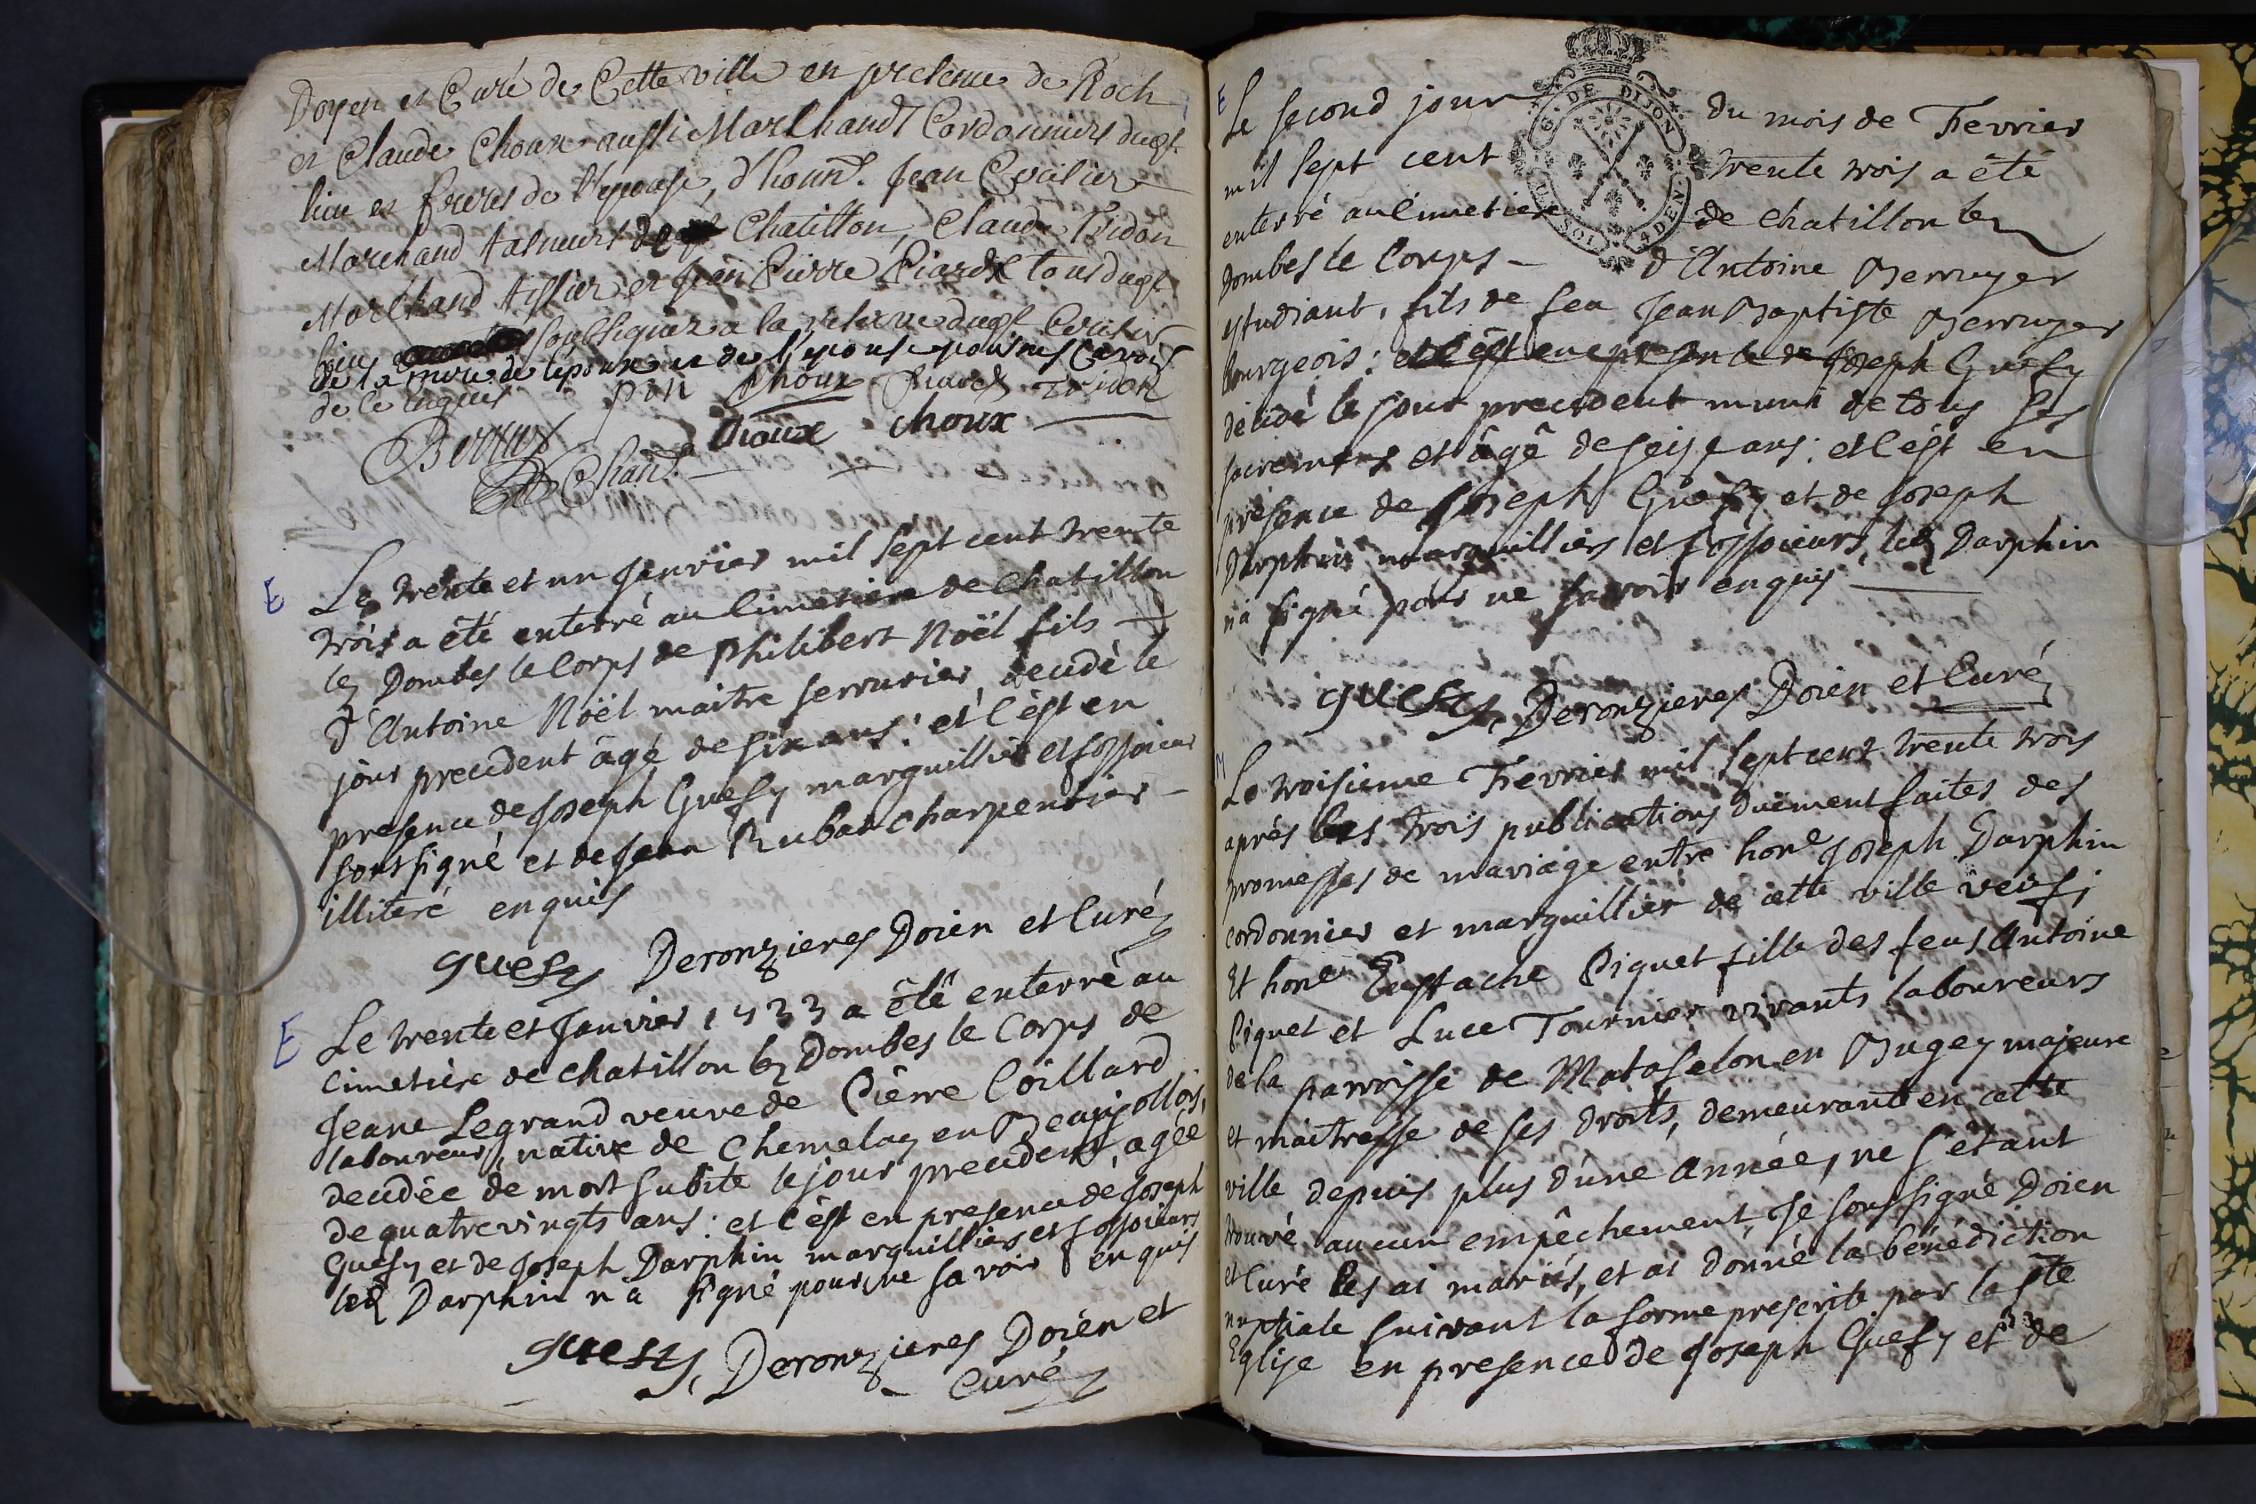 Doyen et Curé de Cette ville en presence de Roch
et Claude Choux aussi Marchands Cordonniers dud.
lieu et freres de l'epouse, d'honn. Jean
Marchand Chatillon, Claude Tridon
Marchand et Jean Pierre Piard tous dud.
lieu soussignez a la reserve dud.
de la mere de l'epoux et de l'epouse pour ne scavoir
de ce enquis
pin choux Piard Tridon
Choux choux
E
Le trente et un Janvier mil sept cent trente
trois a êté enterré au Cimetiere de Chatillon
lez Dombes le Corps de Philibert Noël fils
d'Antoine Noël maitre serrurier decedé le
jour precedent âgé de six ans: et c'ést en
presence de Joseph Guesy marguillier et fossoieur
soussigné et de Jean Rubat charpentier
illiteré enquis
guesy Deronzieres Doien et Curé
E
Le trente et Janvier 1733 a êté enterré au
Cimetière de chatillon lez Dombes le Corps de
Jeane Legrand veuve de Pierre Coillard
laboureur, native de Chemelay en Beaujollois,
decedée de mort subite le jour precedent, agée
de quatrevingts ans: et c'ést en presence de Joseph
Guesy et de Joseph Darphin marguilliers et fossoieurs
led Darphin n'a signé pour ne savoir enquis
guesy, Deronzieres Doien et
Curé
E
Le second jour du mois de Fevrier
mil sept cent trente trois a été
enterré au Cimetiere de chatillon lez
Dombes le Corps d'Antoine Berruyer
estudiant, fils de feu Jean Baptiste Berruyer
bourgeois: et c'ést en presence de Joseph Guesy
décédé le jour precedent muni de tous ses
sacremens et âgé de seise ans: et c'ést en
présence de Joseph Guesy et de Joseph
Darphin marguilliers et fossoieurs, led Darphin
n'a signé pour ne savoir enquis
guesy, Deronzieres Doien et Curé
M
Le troisieme Fevrier mil sept cent trente trois
aprés les trois publications duëment faites des
promesses de mariage entre hone Joseph Darphin
cordonnier et marguillier de cette ville veuf;
Et hone Eustache Piquet fille des feus Antoine
Piquet et Luce Tournier vivants laboureurs
de la parroisse de Matafelon en Bugey majeure
et maitresse de ses droits, demeurante en cette
ville depuis plus d'une année, ne s'étant
trouvé aucun empêchement, Je soussigné Doien
et Curé les ai mariés, et ai donné la bénédiction
nuptiale suivant la forme prescrite par la ste
Eglise en presence de Joseph Guesy et de
G. DE DIJON
4 DEN
SOL